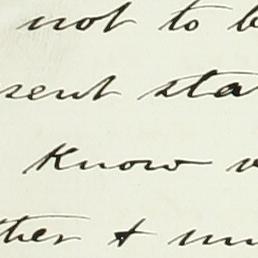 not to b
sent sta
Know
ther & un